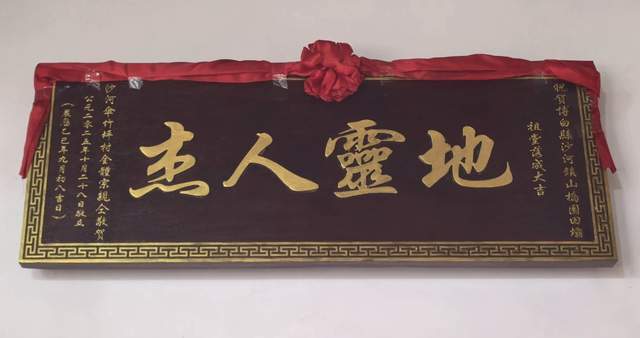 祝賀博白縣沙河鎮山橋園田墉
祖堂落成大吉
地靈人杰
沙河傘竹坪村全體宗親仝敬賀
公元二零二五年十月二十八日敬立
（農曆乙巳年九月初八吉日）